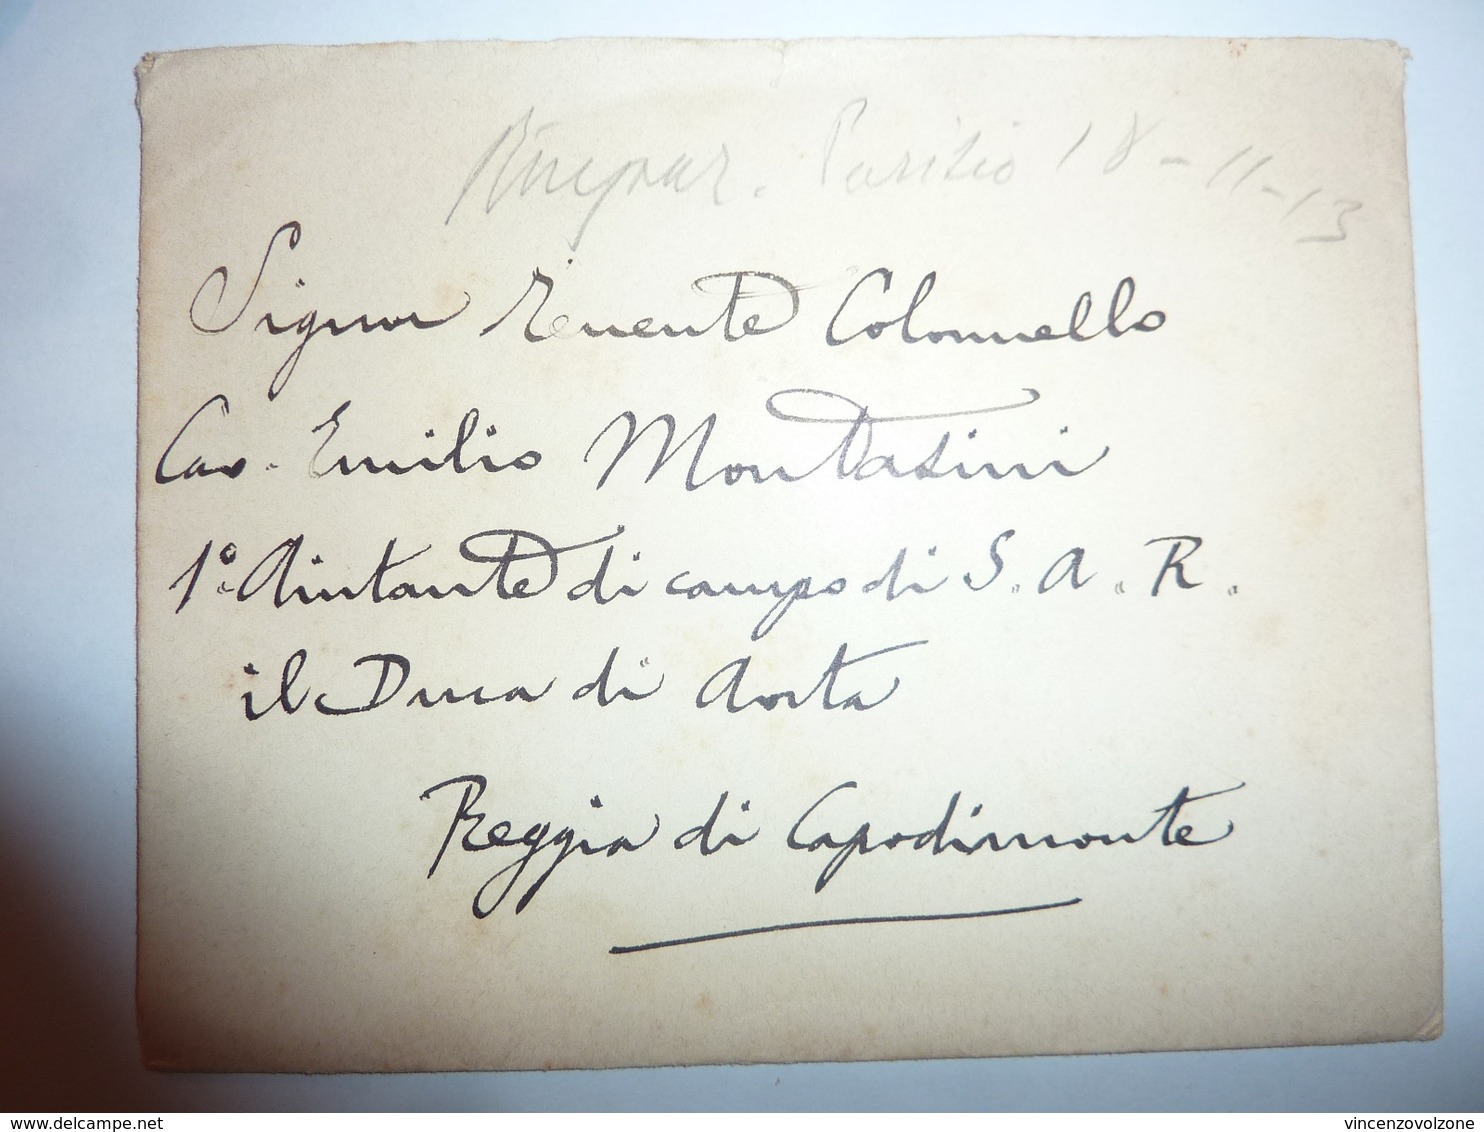 Ringraz. 18-11-13
Signor Tenente Colonnello
Cav. Emilio Montasini
1° Aiutante di campo di S. A. R.
il Duca di Aosta
Reggia di Capodimonte
delcampe.net
vincenzovolzone